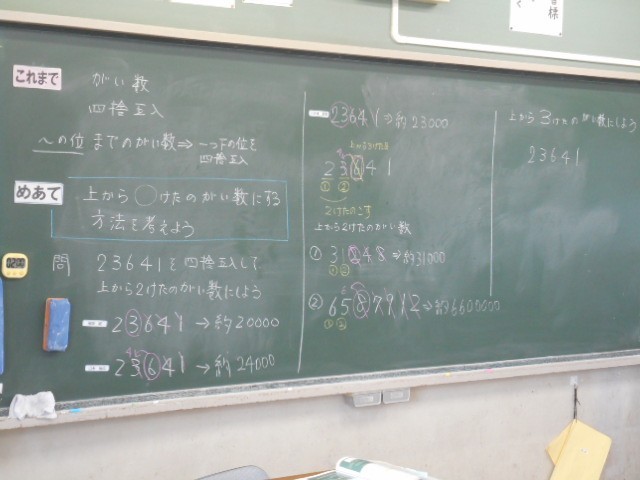 これまで
がい数
四捨五入
〜の位までのがい数⇒一つ下の位を
四捨五入
めあて
上から○けたのがい数にする
方法を考えよう
問 23641を四捨五入して
上から2けたのがい数にしよう
23641→約20000
23641→約24000
23641⇒約23000
上から3けため
23641
① ②
2けたのこす
上から2けたのがい数
① 31848⇒約31000
①②
② 6587912⇒約6600000
①②
上から3けたのがい数にしよう
23641